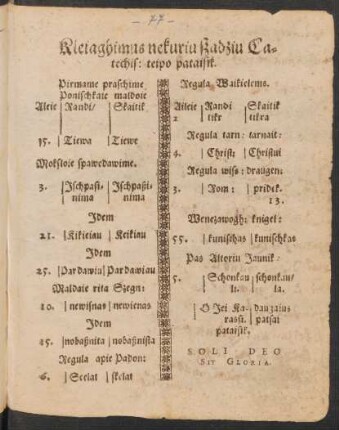 - 77 -
Kletaghimas nekuriu ßadziu Ca-
techis: teipo pataisik.
Pirmame praschime
Poniſchkaie maldoie
Aleie | Randi / | Skaitik
15. | Tiewa | Tiewe
Moksloie spawedawime.
3. | Iſchpaſi- | Iſchpaßi-
nima | nima
Idem
21. | Kikieiau | Keikiau
Idem
25. | Pardawiu | Pardawiau
Maldaie rita Szegn:
10. | newisnas | newienas
Idem
15. | nobaßnita | nobaßnista
Regula apie Padon:
6. | Scelat | skelat
Regula Waikielems.
Aileie | Randi | Skaitik
2 | tikr | tikra
Regula tarn: tarnait:
4. | Christ: | Christui
Regula wiſs: draugen:
3. | Rom: | pridek.
13.
Wenczawogh: knigel:
55. | kuniſchas | kuniſchkas
Pas Altoriu Jaunik:
5. | Schonkau | schonkau/
li. | la.
O Jei Ka- | dauzaius
rassi. | patsai
pataisik.
SOLI DEO
SIT GLORIA.